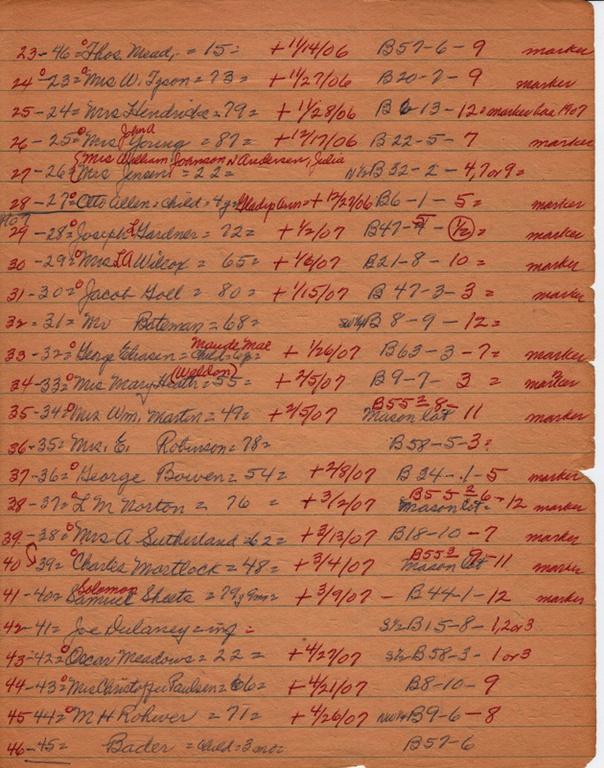 23-46=Thos. Mead, = 15= + 11/14/06 B57-6-9 marker
24-23=Mrs W. Tyson = 73= + 11/27/06 B20-7-9 marker
25-24=Mrs Hendricks = 79= + 11/28/06 B 6-13-12= marker box 1907
John A
26-25=Mrs Young = 87= + 12/17/06 B22-5-7 marker
Mrs William Johnson N Andersen, Julia
27-26 Mrs Jensen = 22= N½ B32-2-4,7 or 9=
28-27=Otto Allen = child = 4 y= Gladys Ann= + 12/27/06 B6-1-5= marker
1907
29-28=Joseph L Gardner = 72= + 1/2/07 B47-5-(1/2)= marker
30-29=Mrs L A Wilcox = 65= + 1/6/07 B21-8-10= marker
31-30=Jacob Goll = 80= + 1/15/07 B 47-3-3= marker
32-31= Mr Bateman = 68= SW¼ B 8-9-12=
Maude Mae
33-32=George Eliasen = child = + 1/26/07 B63-3-7= marker
(Waldon)
34-33=Mrs Mary Heath = 55= + 2/5/07 B9-7-3= marker
B55 8-
35-34=Mrs Wm. Martin = 49= + 2/5/07 Mason lot 11 marker
36-35= Mrs. E. Robinson = 78= B58-5-3?
37-36=George Bowen = 54= + 2/8/07 B34-1-5 marker
B55 6-
38-37=L M Norton = 76= + 3/2/07 Mason lot= 12 marker
39-38=Mrs A Sutherland = 62= + 3/13/07 B18-10-7 marker
B55 9-11
40-39=Charles Mortlock = 48= + 3/4/07 Mason lot marker
Solomon
41-40=Samuel Sheets = 79 y 9mo= + 3/9/07 - B44-1-12 marker
42-41= Joe Dulaney = inf = S½ B15-8-1,2 or 3
43-42=Oscar Meadows = 22= + 4/27/07 S½ B58-3-1 or 3
44-43=Mrs Christoffer Paulsen = 66= + 4/21/07 B8-10-9
45-44=M H Rohwer = 71= + 4/26/07 NW¼ B9-6-8
46-45= Bader = child = 3 mo= B57-6